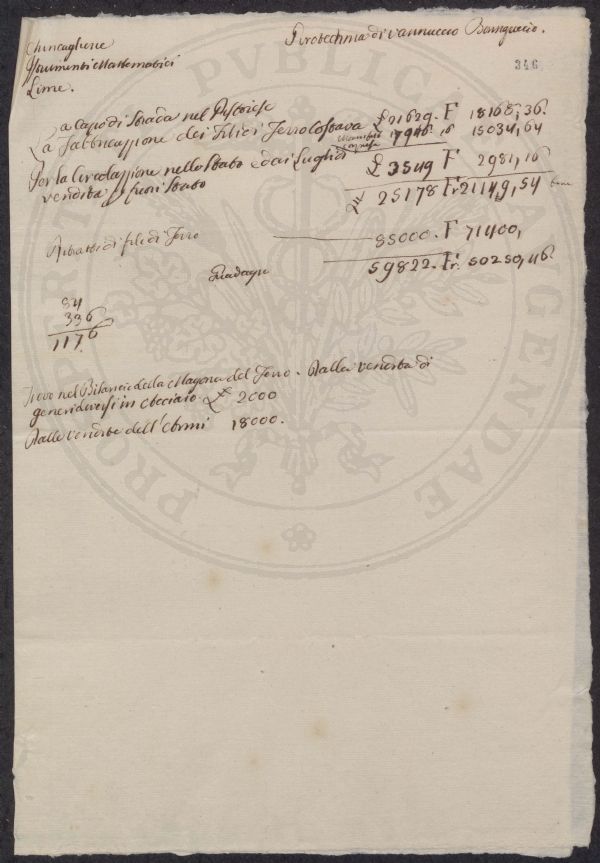 Pirotechnia di Vannuccio Biringuccio.
346
Chincaglierie
Strumenti Mattematici
Lime.
a Capo di Strada nel Pistoiese
La Fabbricazione dei Fili di Ferro Costava £ 21629. F 18168,36.
17946 15034,64
Per la Circolazione nello Stato e dai Lughi £ 3549 F 2981,16
vendita fuori Stato
£ 25178 Fr. 21149,54
Ritratto di fili di Ferro 85000. F 71400,
Guadagni 59822. Fr. 50250,46.
84
336
1176
Trovo nel Bilancio della Magona del Ferro. Dalla vendita di
generi diversi in Acciaio £ 2000
Dalle vendite dell' Armi 18000.
PUBLICAE
PROSPERITATI AUGENDAE